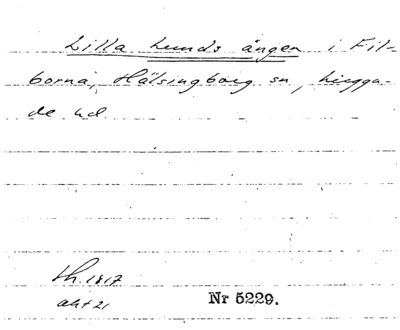 Lilla Lunds ängen i Fil-
borna, Hälsingborg sn, Luggu-
de hd
Lh. 1817
akt 21
Nr 5229.